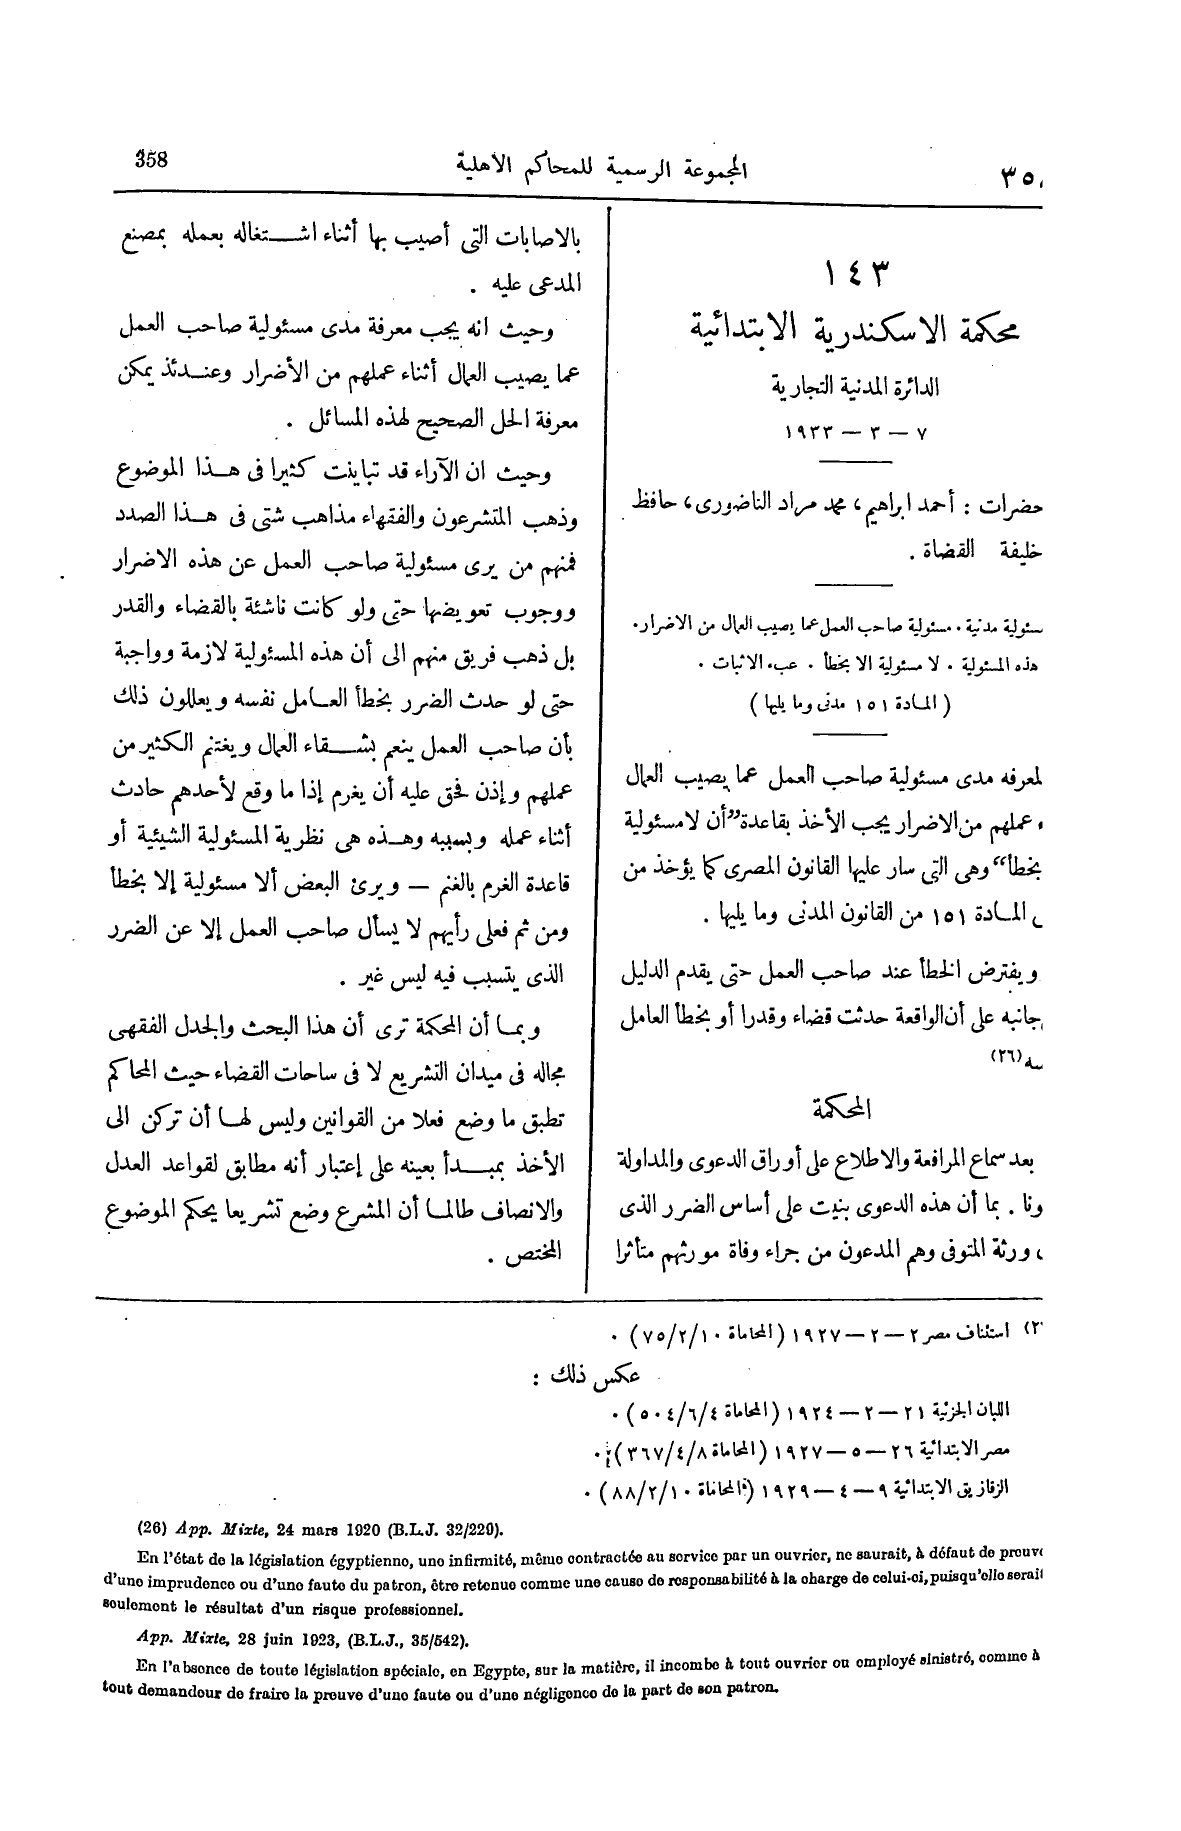 358
المجموعة الرسمية للمحاكم الأهلية
٣٥
١٤٣
محكمة الاسكندرية الابتدائية
الدائرة المدنية التجارية
٧ — ٣ — ١٩٣٣
حضرات : أحمد ابراهيم، محمد مراد الناضورى، حافظ
خليفة القضاة .
سئولية مدنية . مسئولية صاحب العمل عما يصيب العمال من الاضرار.
هذه المسئولية . لا مسئولية الا بخطأ . عبء الاثبات .
( المادة ١٥١ مدنى وما يليها )
لمعرفه مدى مسئولية صاحب العمل عما يصيب العمال
ء عملهم من الاضرار يجب الأخذ بقاعدة ”أن لا مسئولية
بخطأ“ وهى التى سار عليها القانون المصرى كما يؤخذ من
المادة ١٥١ من القانون المدنى وما يليها .
ويفترض الخطأ عند صاحب العمل حتى يقدم الدليل
جانبه على أن الواقعة حدثت قضاء وقدرا أو بخطأ العامل
سه (٢٦)
المحكمة
بعد سماع المرافعة والاطلاع على أوراق الدعوى والمداولة
ونا . بما أن هذه الدعوى بنيت على أساس الضرر الذى
ورثة المتوفى وهم المدعون من جراء وفاة مورثهم متأثرا
بالاصابات التى أصيب بها أثناء اشتغاله بعمله بمصنع
المدعى عليه .
وحيث انه يجب معرفة مدى مسئولية صاحب العمل
عما يصيب العمال أثناء عملهم من الأضرار وعندئذ يمكن
معرفة الحل الصحيح لهذه المسائل .
وحيث ان الآراء قد تباينت كثيرا فى هذا الموضوع
وذهب المتشرعون والفقهاء مذاهب شتى فى هذا الصدد
فمنهم من يرى مسئولية صاحب العمل عن هذه الاضرار
ووجوب تعويضها حتى ولو كانت ناشئة بالقضاء والقدر
بل ذهب فريق منهم الى أن هذه المسئولية لازمة وواجبة
حتى لو حدث الضرر بخطأ العامل نفسه ويعللون ذلك
بأن صاحب العمل ينعم بشقاء العمال ويغتنم الكثير من
عملهم وإذن فحق عليه أن يغرم إذا ما وقع لأحدهم حادث
أثناء عمله وبسببه وهذه هى نظرية المسئولية الشيئية أو
قاعدة الغرم بالغنم — ويرئ البعض ألا مسئولية إلا بخطأ
ومن ثم فعلى رأيهم لا يسأل صاحب العمل إلا عن الضرر
الذى يتسبب فيه ليس غير .
وبما أن المحكمة ترى أن هذا البحث والجدل الفقهى
مجاله فى ميدان التشريع لا فى ساحات القضاء حيث المحاكم
تطبق ما وضع فعلا من القوانين وليس لها أن تركن الى
الأخذ بمبدأ بعينه على إعتبار أنه مطابق لقواعد العدل
والانصاف طالما أن المشرع وضع تشريعا يحكم الموضوع
المختص .
استئناف مصر ٢ — ٢ — ١٩٢٧ (المحاماة ٧٥/٢/١٠) .
عكس ذلك :
اللبان الجزئية ٢١ — ٢ — ١٩٢٤ (المحاماة ٥٠٤/٦/٤) .
مصر الابتدائية ٢٦ — ٥ — ١٩٢٧ (المحاماة ٣٦٧/٤/٨) .
الزقازيق الابتدائية ٩ — ٤ — ١٩٢٩ (المحاماة ٨٨/٢/١٠) .
(26) App. Mixte, 24 mars 1920 (B.L.J. 32/229).
En l'état de la législation égyptienne, une infirmité, même contractée au service par un ouvrier, ne saurait, à défaut de preuve
d'une imprudence ou d'une faute du patron, être retenue comme une cause de responsabilité à la charge de celui-ci, puisqu'elle serait
seulement le résultat d'un risque professionnel.
App. Mixte, 28 juin 1923, (B.L.J., 35/542).
En l'absence de toute législation spéciale, en Egypte, sur la matière, il incombe à tout ouvrier ou employé sinistré, comme à
tout demandeur de fraire la preuve d'une faute ou d'une négligence de la part de son patron.